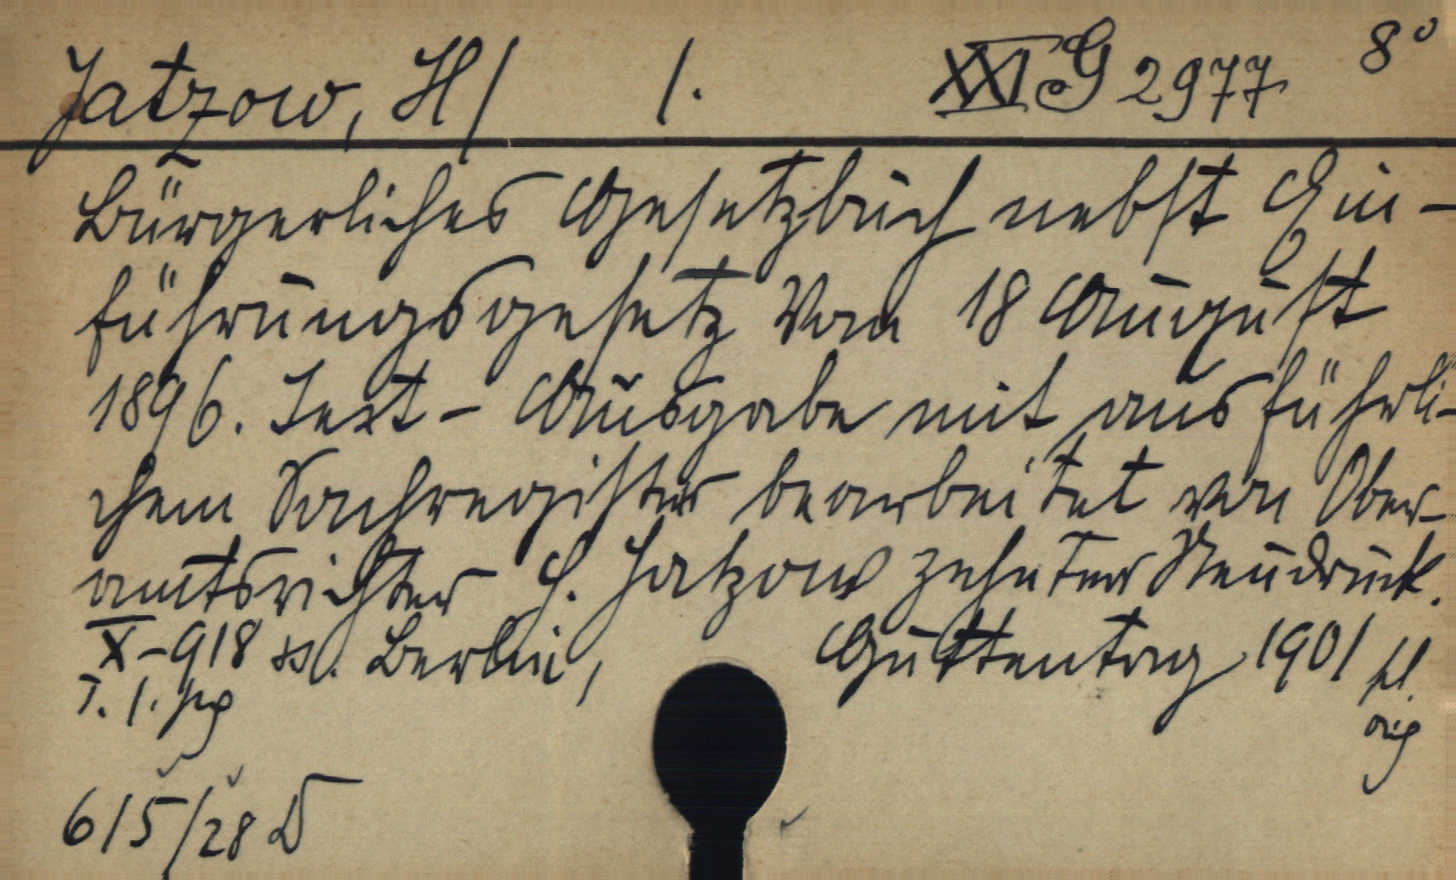 Jatzow, H/ 1. XXI G 2977 8°
Bürgerliches Gesetzbuch nebst Ein-
führungsgesetz vom 18 August
1896. Text-Ausgabe mit ausführli-
chem Sachregister bearbeitet von Ober-
amtsrichter H. Jatzow zehnter Neudruck.
X-918 ss. Berlin, Guttentag 1901 kl.
T. 1. orig
615/28 D